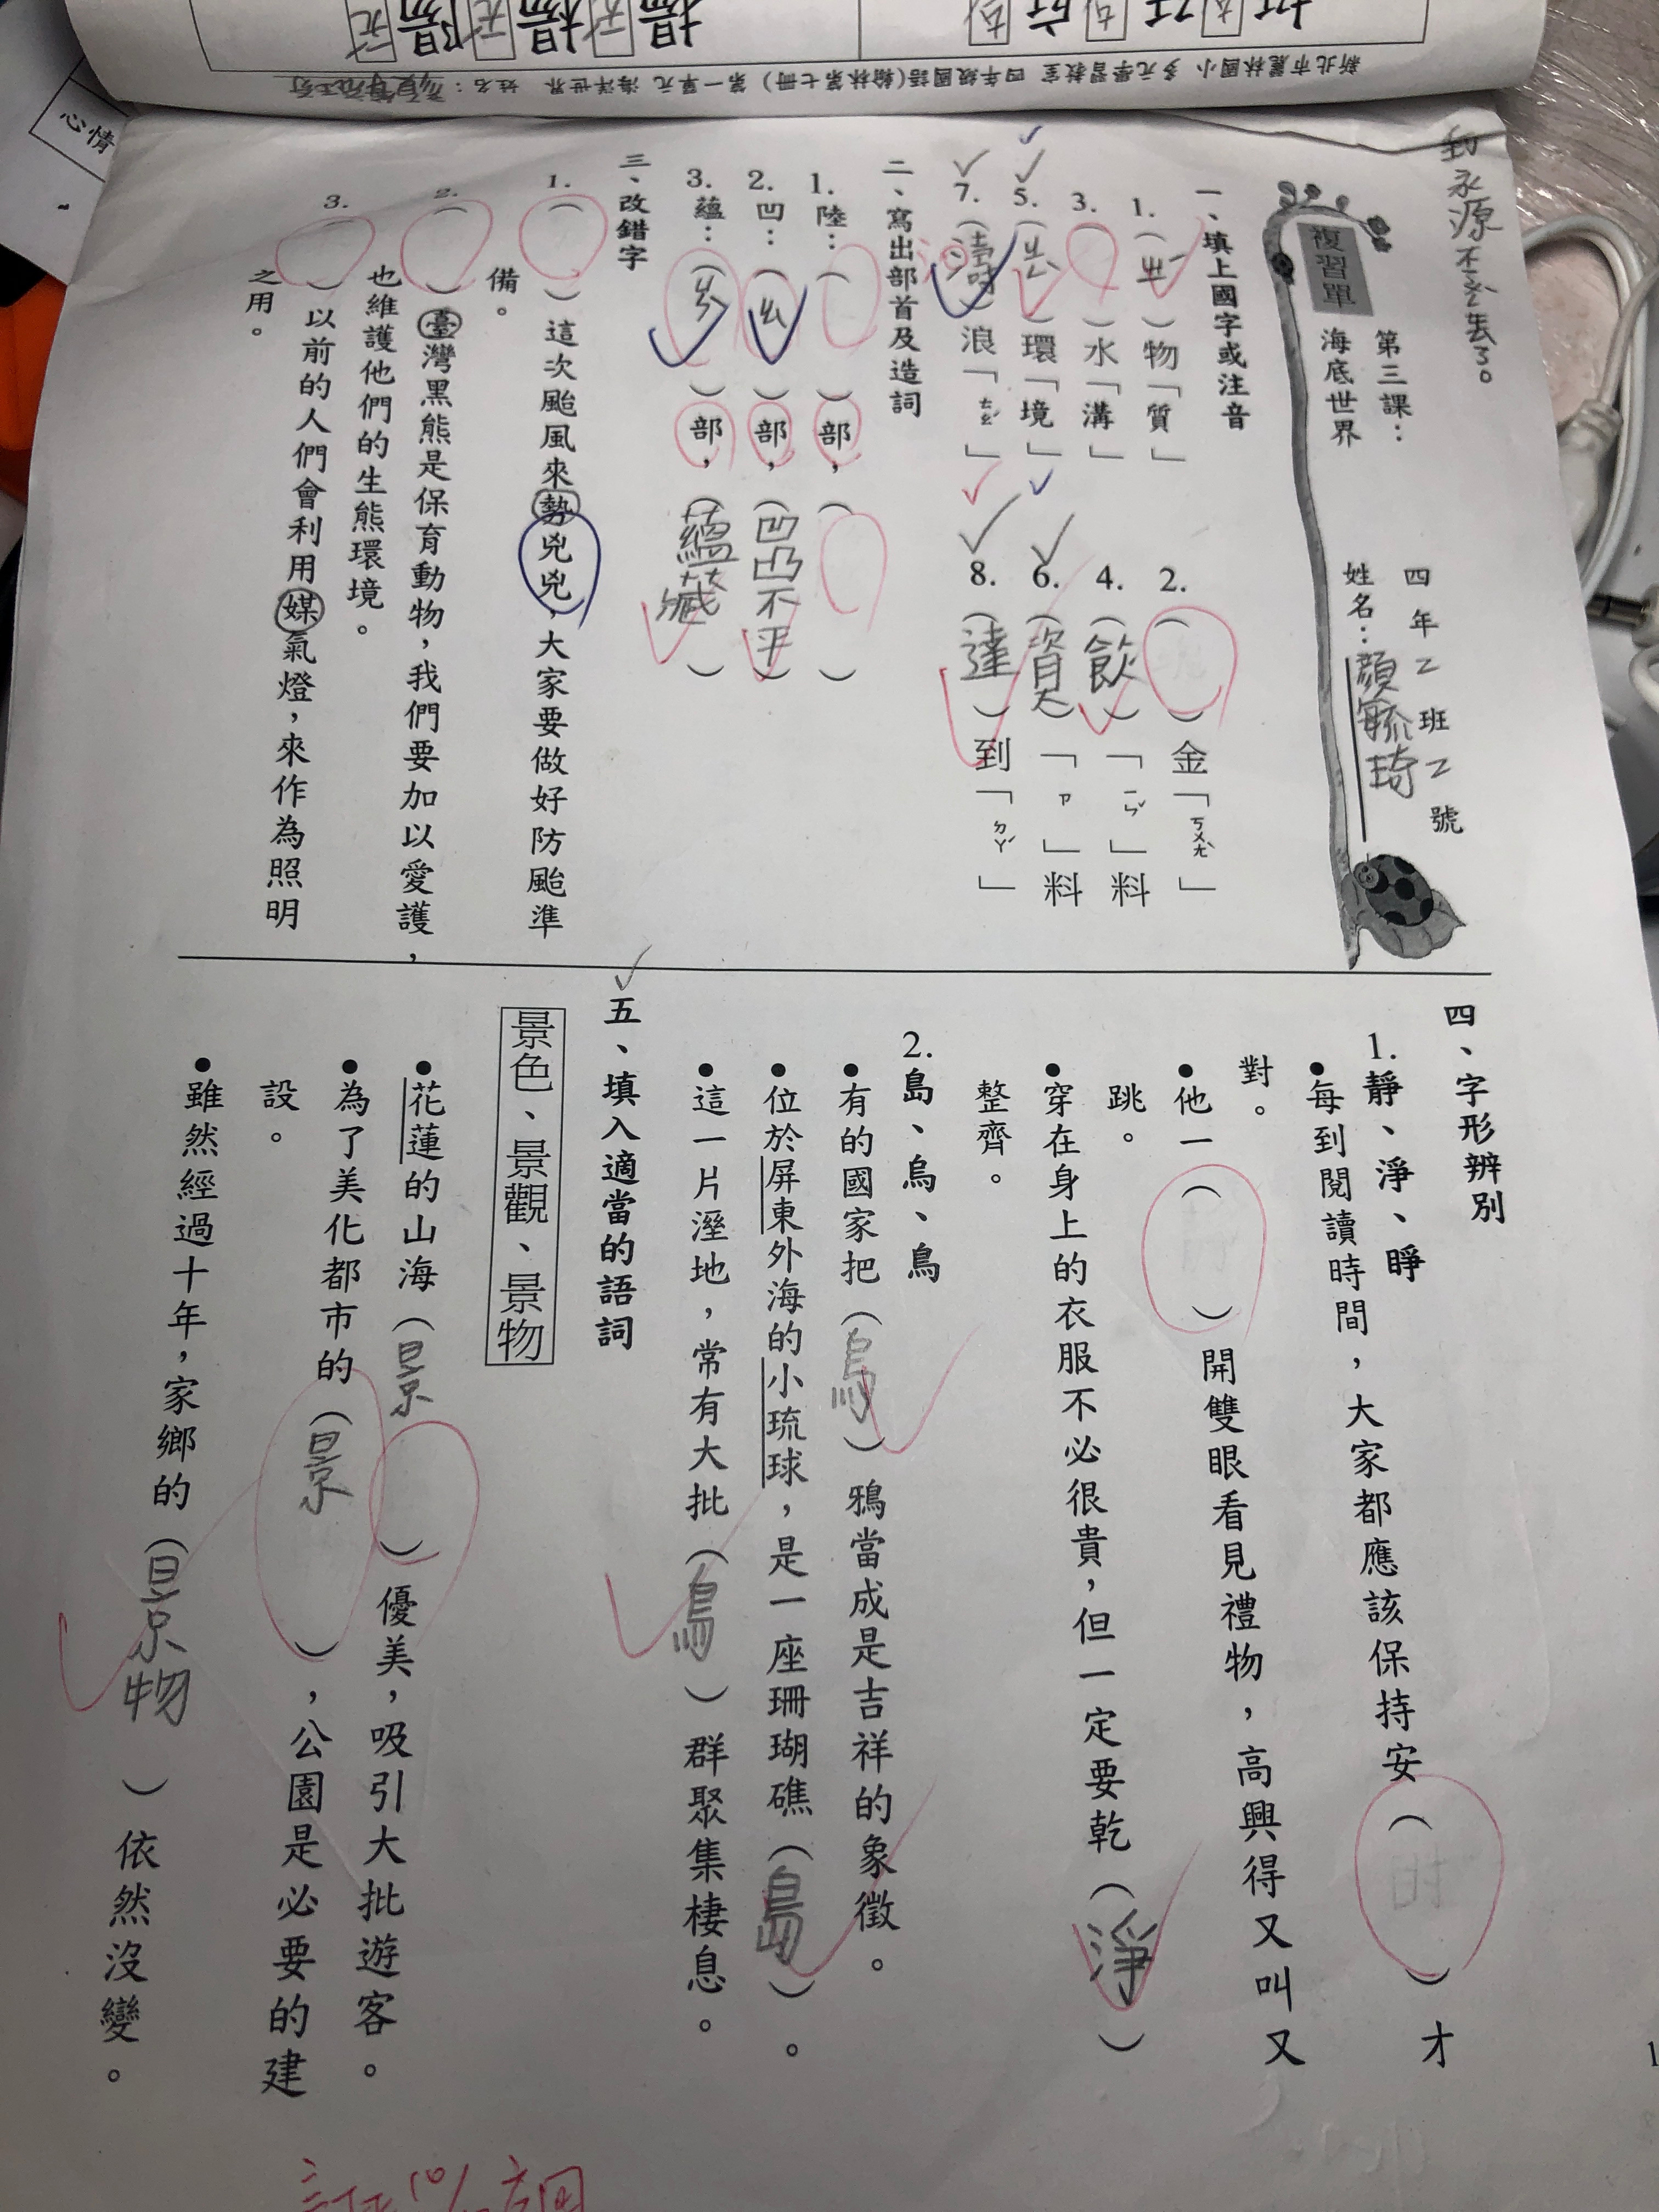 新北市麗林國小 多元學習教室 四年級國語(翰林第七冊) 第一單元 海洋世界 姓名:
心情
劉永源不要丟了。
複習單
第三課：
海底世界
四年2班2號
姓名：顏毓琦
一、填上國字或注音
1.（ㄓˊ）物「質」
2.（）金「ㄎㄨㄤˋ」
3.（）水「溝」
4.（飲）「ㄧㄣˇ」料
5.（）環「境」
6.（資）「ㄗ」料
7.（濤）浪「ㄊㄠ」
8.（達）到「ㄉㄚˊ」
二、寫出部首及造詞
1.陸：（）部，（）
2.凹：（）部，（凹凸不平）
3.蘊：（）部，（蘊藏）
三、改錯字
1.（）這次颱風來勢兇兇，大家要做好防颱準
備。
2.（）臺灣黑熊是保育動物，我們要加以愛護，
也維護他們的生熊環境。
3.（）以前的人們會利用媒氣燈，來作為照明
之用。
四、字形辨別
1.靜、淨、睜
●每到閱讀時間，大家都應該保持安（）才
對。
●他一（）開雙眼看見禮物，高興得又叫又
跳。
●穿在身上的衣服不必很貴，但一定要乾（淨）
整齊。
2.島、烏、鳥
●有的國家把（烏）鴉當成是吉祥的象徵。
●位於屏東外海的小琉球，是一座珊瑚礁（島）。
●這一片溼地，常有大批（鳥）群聚集棲息。
五、填入適當的語詞
景色、景觀、景物
●花蓮的山海（景）優美，吸引大批遊客。
●為了美化都市的（景），公園是必要的建
設。
●雖然經過十年，家鄉的（景物）依然沒變。
1